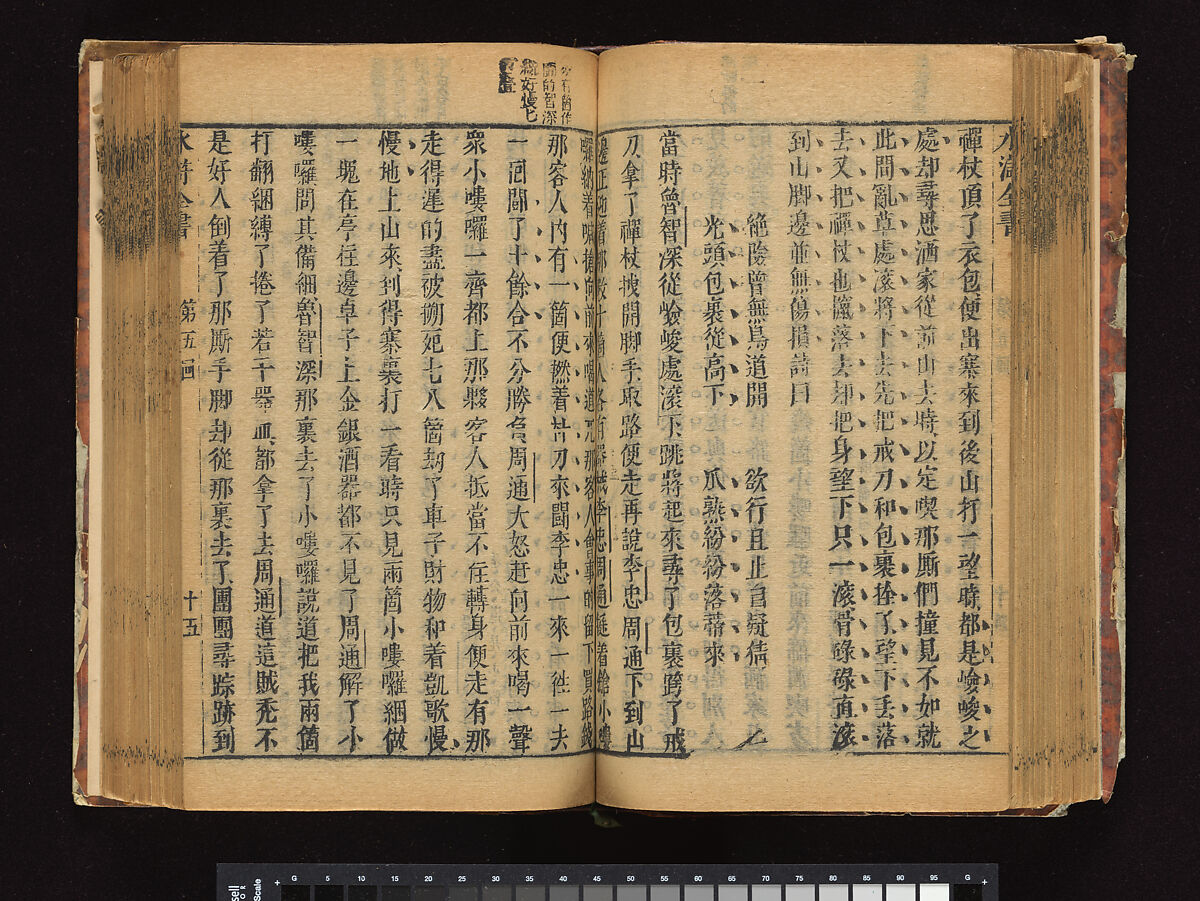 禪杖頂了衣包便出寨來到後山打一望時都是嶮峻之
處却尋思洒家從前山去時以定喫那厮們撞見不如就
此間亂草處滾將下去先把戒刀和包裹拴了望下丢落
去又把禪杖也攛落去却把身望下只一滾骨碌碌直滾
到山脚邊並無傷損詩曰
絶險曾無鳥道開 欲行且止自疑猜
光頭包裹從高下 瓜熟紛紛落蒂來
當時魯智深從嶮峻處滾下跳將起來尋了包裹跨了戒
刀拿了禪杖拽開脚手取路便走再說李忠周通下到山
邊正迎着那數十箇人各有器械李忠周通挺着鎗小嘍
囉吶着喊搶向前來喝道兀那客人會事的留下買路錢
那客人內有一箇便撚着朴刀來鬪李忠一來一徃一去
一囘鬪了十餘合不分勝負周通大怒赶向前來喝一聲
衆小嘍囉一齊都上那夥客人抵當不住轉身便走有那
走得遲的盡被搠死七八箇刼了車子財物和着凱歌慢
慢地上山來到得寨裏打一看時只見兩箇小嘍囉綑做
一塊在亭柱邊卓子上金銀酒器都不見了周通解了小
嘍囉問其備細魯智深那裏去了小嘍囉說道把我兩箇
打翻綑縛了捲了若干器皿都拿了去周通道這賊禿不
是好人倒着了那厮手脚却從那裏去了團團尋踪跡到
水滸全書
第五回
十五